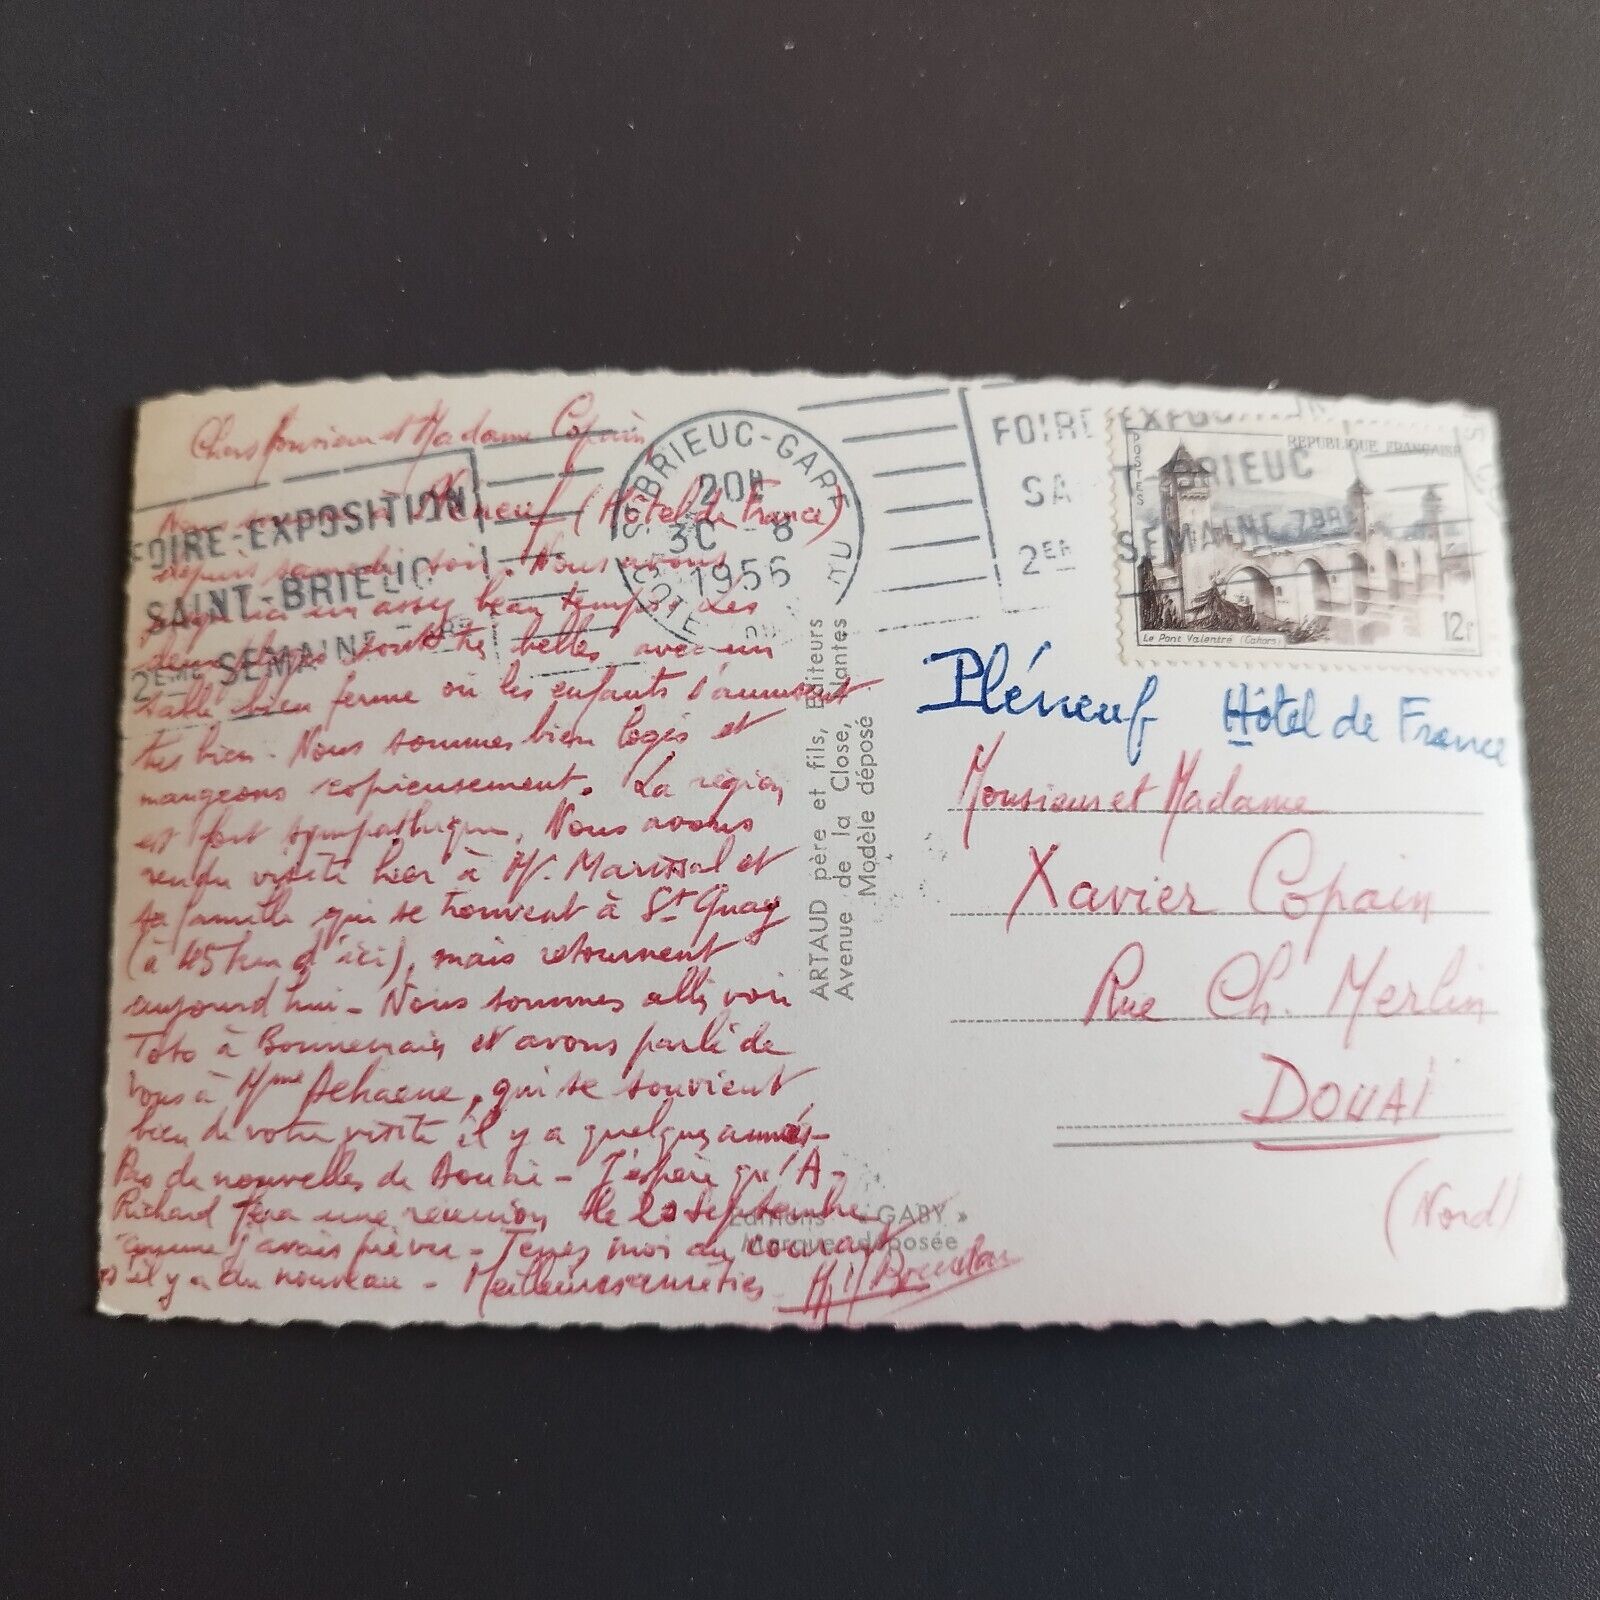 Chers Monsieur et Madame Copain
Nous sommes à Pléneuf (Hôtel de France)
depuis samedi soir. Nous avons
ici un assez beau temps. Les
deux plages sont très belles avec un
sable bien ferme où les enfants s'amusent
très bien. Nous sommes bien logés et
mangeons copieusement. La région
est fort sympathique. Nous avons
rendu visite hier à Mr. et
sa famille qui se trouvent à St Quay
(à 45 km d'ici), mais retournent
aujourd'hui - Nous sommes allés voir
Toto à et avons parlé de
vous à Mme Dehaene, qui se souvient
bien de votre visite il y a quelques années -
Pas de nouvelles de Douai - J'espère qu'A-
Richard fera une réunion le 20 septembre
comme j'avais prévu - Tenez moi au courant
s'il y a du nouveau - Meilleures amitiés
FOIRE-EXPOSITION
SAINT-BRIEUC
2EME SEMAINE 7BRE
ST BRIEUC-GARE
20H
30-8
1956
COTES DU NORD
FOIRE EXPOSITION
SAINT-BRIEUC
2EME SEMAINE 7BRE
POSTES
REPUBLIQUE FRANÇAISE
Le Pont Valentré (Cahors)
12f
ARTAUD père et fils, Editeurs
Avenue de la Close, Nantes
Modèle déposé
Editions « GABY »
Marque déposée
Pléneuf Hôtel de France
Monsieur et Madame
Xavier Copain
Rue Ch. Merlin
DOUAI
(Nord)